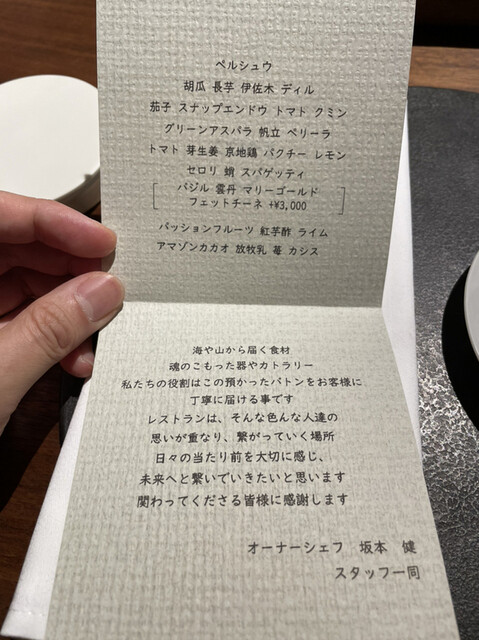 ペルシュウ
胡瓜 長芋 伊佐木 ディル
茄子 スナップエンドウ トマト クミン
グリーンアスパラ 帆立 ペリーラ
トマト 芽生姜 京地鶏 パクチー レモン
セロリ 蛸 スパゲッティ
バジル 雲丹 マリーゴールド
フェットチーネ +¥3,000
パッションフルーツ 紅芋酢 ライム
アマゾンカカオ 放牧乳 苺 カシス
海や山から届く食材
魂のこもった器やカトラリー
私たちの役割はこの預かったバトンをお客様に
丁寧に届ける事です
レストランは、そんな色んな人達の
思いが重なり、繋がっていく場所
日々の当たり前を大切に感じ、
未来へと繋いでいきたいと思います
関わってくださる皆様に感謝します
オーナーシェフ 坂本 健
スタッフ一同